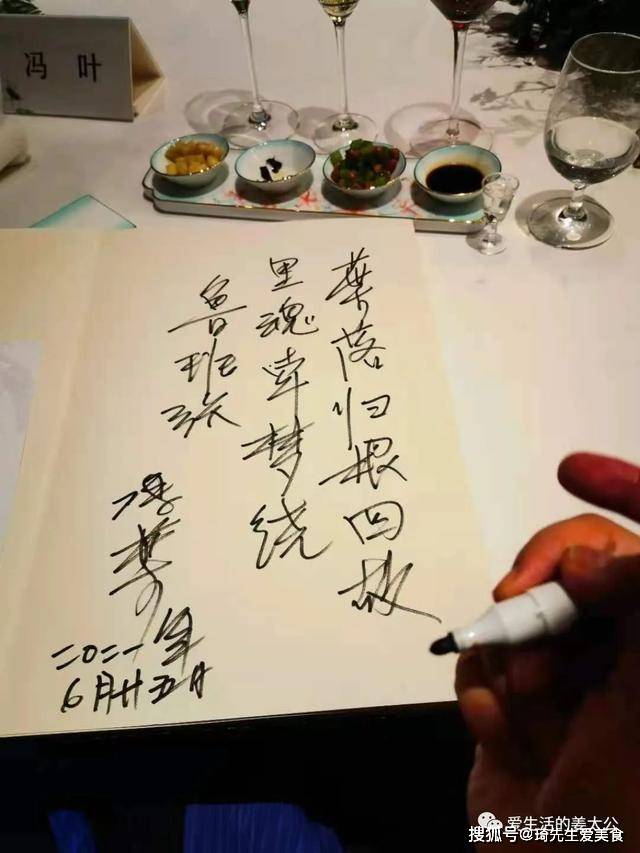 冯 叶
葉落归根回故
里魂牵梦绕
鲁班张
冯葉
二〇二一年
6月廿五日
爱生活的姜太公
搜狐号@琦先生爱美食